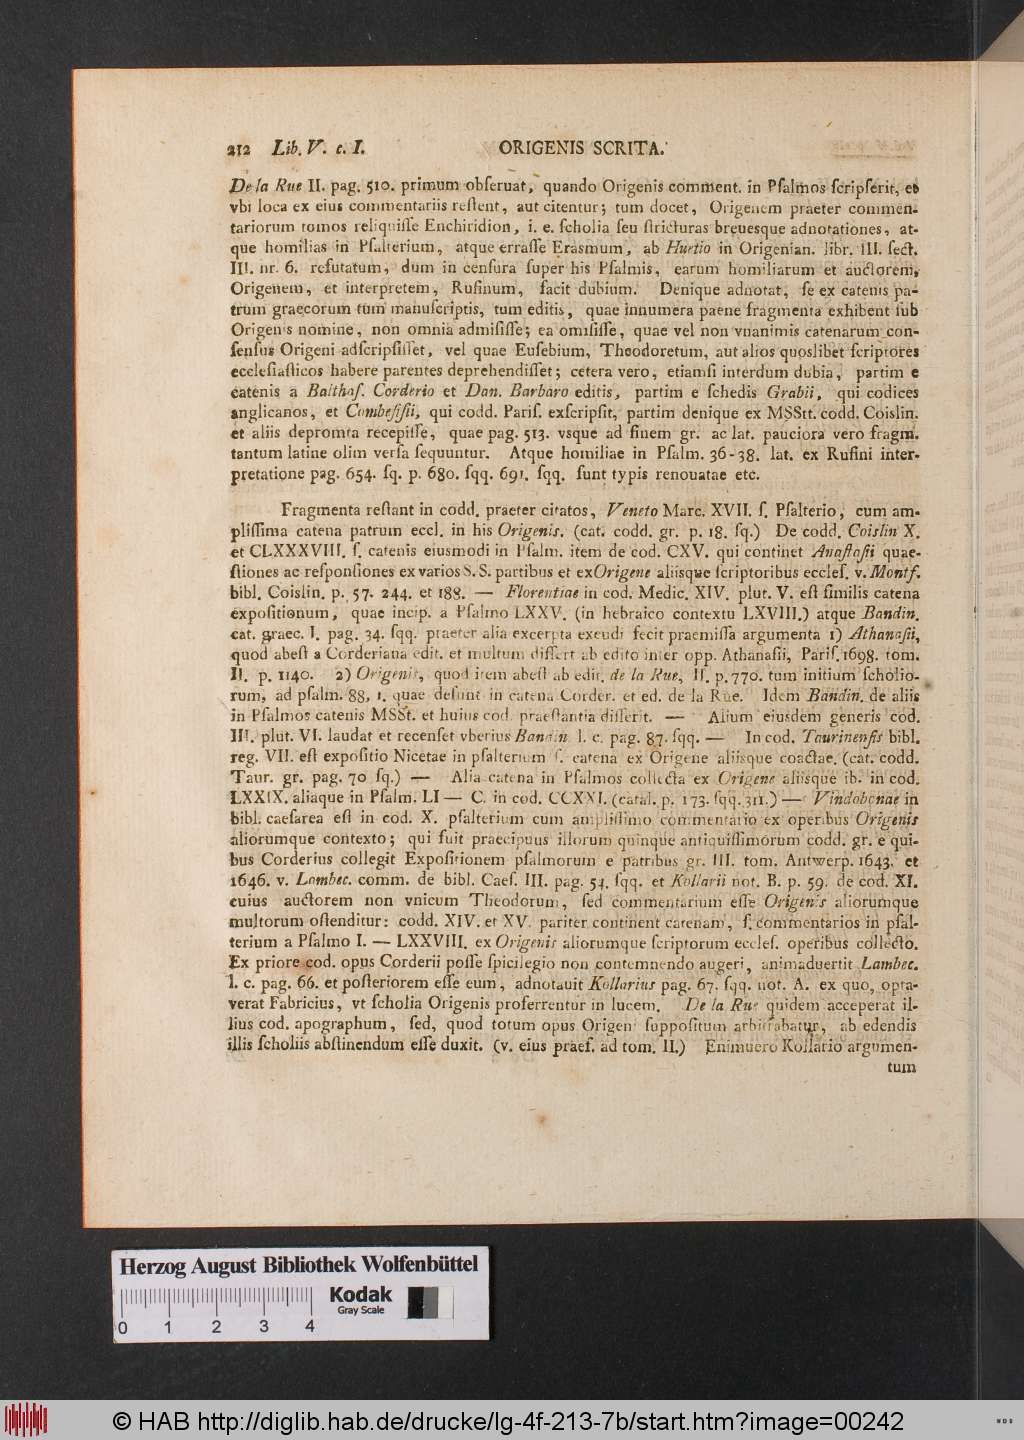 212 Lib. V. c. I. ORIGENIS SCRITA.
De la Rue II. pag. 510. primum obſeruat, quando Origenis comment. in Pſalmos ſcripſerit, et
vbi loca ex eius commentariis reſtent, aut citentur; tum docet, Origenem praeter commen-
tariorum tomos reliquiſſe Enchiridion, i. e. ſcholia ſeu ſtricturas breuesque adnotationes, at-
que homilias in Pſalterium, atque erraſſe Eraſmum, ab Huetio in Origenian. libr. III. ſect.
III. nr. 6. refutatum, dum in cenſura ſuper his Pſalmis, earum homiliarum et auctorem,
Origenem, et interpretem, Rufinum, facit dubium. Denique adnotat, ſe ex catenis pa-
trum graecorum tum manuſcriptis, tum editis, quae innumera paene fragmenta exhibent ſub
Origenis nomine, non omnia admiſiſſe; ea omiſiſſe, quae vel non vnanimis catenarum con-
ſenſus Origeni adſcripſiſſet, vel quae Euſebium, Theodoretum, aut alios quoslibet ſcriptores
eccleſiaſticos habere parentes deprehendiſſet; cetera vero, etiamſi interdum dubia, partim e
catenis a Balthaſ. Corderio et Dan. Barbaro editis, partim e ſchedis Grabii, qui codices
anglicanos, et Combefiſii, qui codd. Pariſ. exſcripſit, partim denique ex MSStt. codd. Coislin.
et aliis depromta recepiſſe, quae pag. 513. vsque ad finem gr. ac lat. pauciora vero fragm.
tantum latine olim verſa ſequuntur. Atque homiliae in Pſalm. 36-38. lat. ex Rufini inter-
pretatione pag. 654. ſq. p. 680. ſqq. 691. ſqq. ſunt typis renouatae etc.
Fragmenta reſtant in codd. praeter citatos, Veneto Marc. XVII. ſ. Pſalterio, cum am-
pliſſima catena patrum eccl. in his Origenis. (cat. codd. gr. p. 18. ſq.) De codd. Coislin X.
et CLXXXVIII. ſ. catenis eiusmodi in Pſalm. item de cod. CXV. qui continet Anaſtaſii quae-
ſtiones ac reſponſiones ex varios S. S. partibus et ex Origene aliisque ſcriptoribus eccleſ. v. Montf.
bibl. Coislin. p. 57. 244. et 188. — Florentiae in cod. Medic. XIV. plut. V. eſt ſimilis catena
expoſitionum, quae incip. a Pſalmo LXXV. (in hebraico contextu LXVIII.) atque Bandin.
cat. graec. I. pag. 34. ſqq. praeter alia excerpta excudi fecit praemiſſa argumenta 1) Athanaſii,
quod abeſt a Corderiana edit. et multum differt ab edito inter opp. Athanaſii, Pariſ. 1698. tom.
II. p. 1140. 2) Origenis, quod item abeſt ab edit. de la Rue, II. p. 770. tum initium ſcholio-
rum, ad pſalm. 88, 1. quae deſunt in catena Corder. et ed. de la Rue. Idem Bandin. de aliis
in Pſalmos catenis MSSt. et huius cod. praeſtantia diſſerit. — Alium eiusdem generis cod.
III. plut. VI. laudat et recenſet vberius Bandin l. c. pag. 87. ſqq. — In cod. Taurinenſis bibl.
reg. VII. eſt expoſitio Nicetae in pſalterium ſ. catena ex Origene aliisque coactae. (cat. codd.
Taur. gr. pag. 70 ſq.) — Alia catena in Pſalmos collecta ex Origene aliisque ib. in cod.
LXXIX. aliaque in Pſalm. LI — C. in cod. CCXXI. (catal. p. 173. ſqq. 311.) — Vindobonae in
bibl. caeſarea eſt in cod. X. pſalterium cum ampliſſimo commentario ex operibus Origenis
aliorumque contexto; qui fuit praecipuus illorum quinque antiquiſſimorum codd. gr. e qui-
bus Corderius collegit Expoſitionem pſalmorum e patribus gr. III. tom. Antwerp. 1643. et
1646. v. Lambec. comm. de bibl. Caeſ. III. pag. 54. ſqq. et Kollarii not. B. p. 59. de cod. XI.
cuius auctorem non vnicum Theodorum, ſed commentarium eſſe Origenis aliorumque
multorum oſtenditur: codd. XIV. et XV. pariter continent catenam, ſ. commentarios in pſal-
terium a Pſalmo I. — LXXVIII. ex Origenis aliorumque ſcriptorum eccleſ. operibus collecto.
Ex priore cod. opus Corderii poſſe ſpicilegio non contemnendo augeri, animaduertit Lambec.
l. c. pag. 66. et poſteriorem eſſe eum, adnotauit Kollarius pag. 67. ſqq. not. A. ex quo, opta-
verat Fabricius, vt ſcholia Origenis proferrentur in lucem. De la Rue quidem acceperat il-
lius cod. apographum, ſed, quod totum opus Origeni ſuppoſitum arbitrabatur, ab edendis
illis ſcholiis abſtinendum eſſe duxit. (v. eius praef. ad tom. II.) Enimuero Kollario argumen-
tum
Herzog August Bibliothek Wolfenbüttel
Kodak
Gray Scale
0 1 2 3 4
© HAB http://diglib.hab.de/drucke/lg-4f-213-7b/start.htm?image=00242